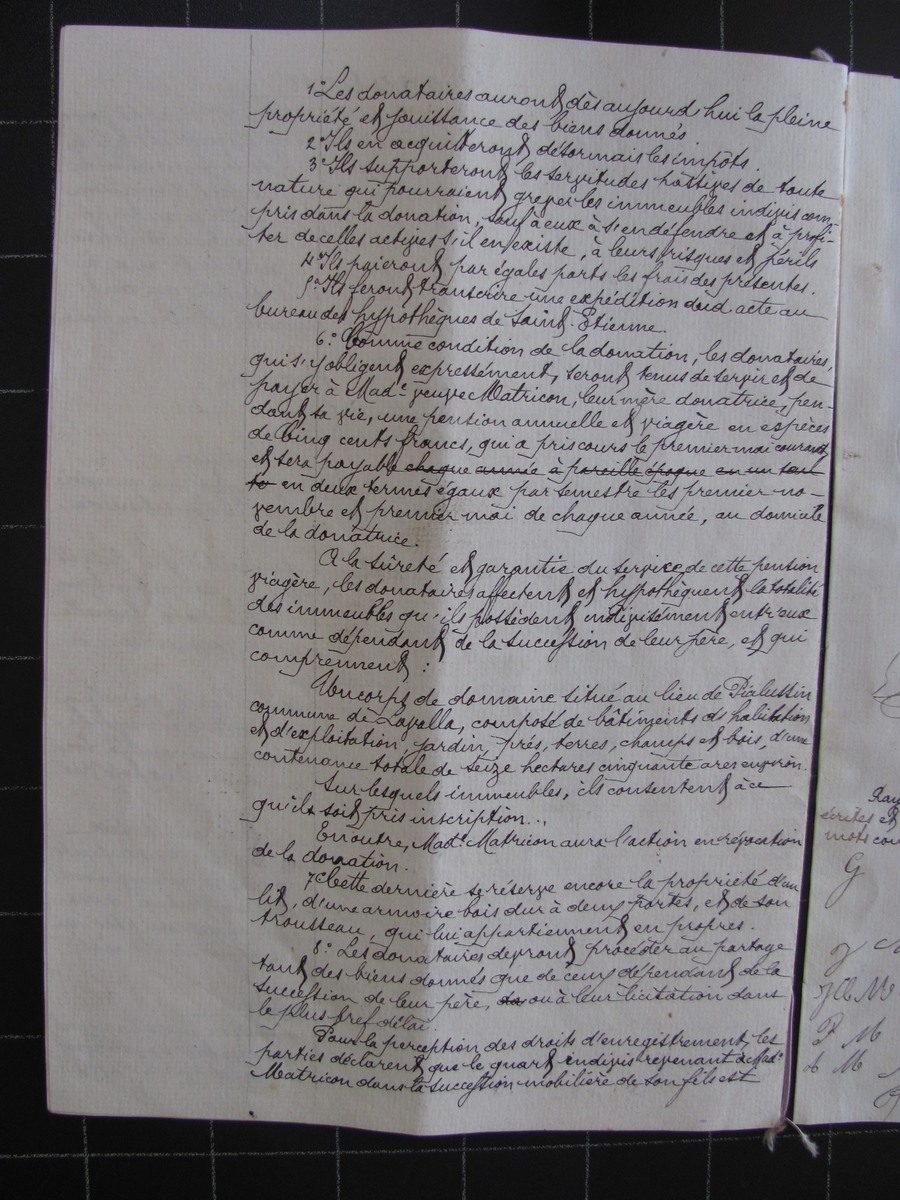 1° Les donataires auront dès aujourd'hui la pleine
propriété et jouissance des biens donnés
2° Ils en acquitteront désormais les impôts.
3° Ils supporteront les servitudes passives de toute
nature qui pourraient grever les immeubles indivis com-
pris dans la donation, sauf à eux à s'en défendre et à profi-
ter de celles actives s'il en existe, à leurs risques et périls
4° Ils paieront par égales parts les frais des présentes.
5° Ils feront transcrire une expédition dud. acte au
bureau des hypothèques de Saint-Etienne.
6° Comme condition de la donation, les donataires,
qui s'y obligent expressément, seront tenus de servir et de
payer à Mad.e veuve Matricon, leur mère donatrice, pen-
dant sa vie, une pension annuelle et viagère en espèces
de Cinq cents francs, qui a pris cours le premier mai courant
et sera payable chaque année à pareille époque en un seul
te en deux termes égaux par semestre les premier no-
vembre et premier mai de chaque année, au domicile
de la donatrice.
A la sûreté et garantie du service de cette pension
viagère, les donataires affectent et hypothèquent la totalité
des immeubles qu'ils possèdent indivisément entr'eux
comme dépendant de la succession de leur père, et qui
comprennent :
Un corps de domaine situé au lieu de Pialussin
commune de Lavalla, composé de bâtiments d'habitation
et d'exploitation, jardin, prés, terres, champs et bois, d'une
contenance totale de seize hectares cinquante ares environ.
Sur lesquels immeubles, ils consentent à ce
qu'il soit pris inscription..,
En outre, Mad.e Matricon aura l'action en révocation
de la donation.
7° Cette dernière se réserve encore la propriété d'un
lit, d'une armoire bois dur à deux portes, et de son
trousseau, qui lui appartiennent en propres.
8° Les donataires devront procéder au partage
tant des biens donnés que de ceux dépendant de la
succession de leur père, ou à leur licitation dans
le plus bref délai.
Pour la perception des droits d'enregistrement, les
parties déclarent que le quart indivis revenant à Mad.e
Matricon dans la succession mobilière de son fils est
Ray
écrites et
mots
G
J
P M
M